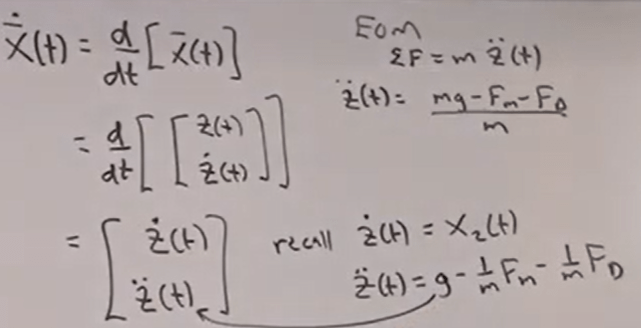 ẋ̄(t) = d/dt [x̄(t)]
= d/dt [ [ z(t) ż(t) ] ]
= [ ż(t) z̈(t) ]
EOM
ΣF = m z̈(t)
z̈(t) = mg - Fm - FD / m
recall ż(t) = x₂(t)
z̈(t) = g - 1/m Fm - 1/m FD